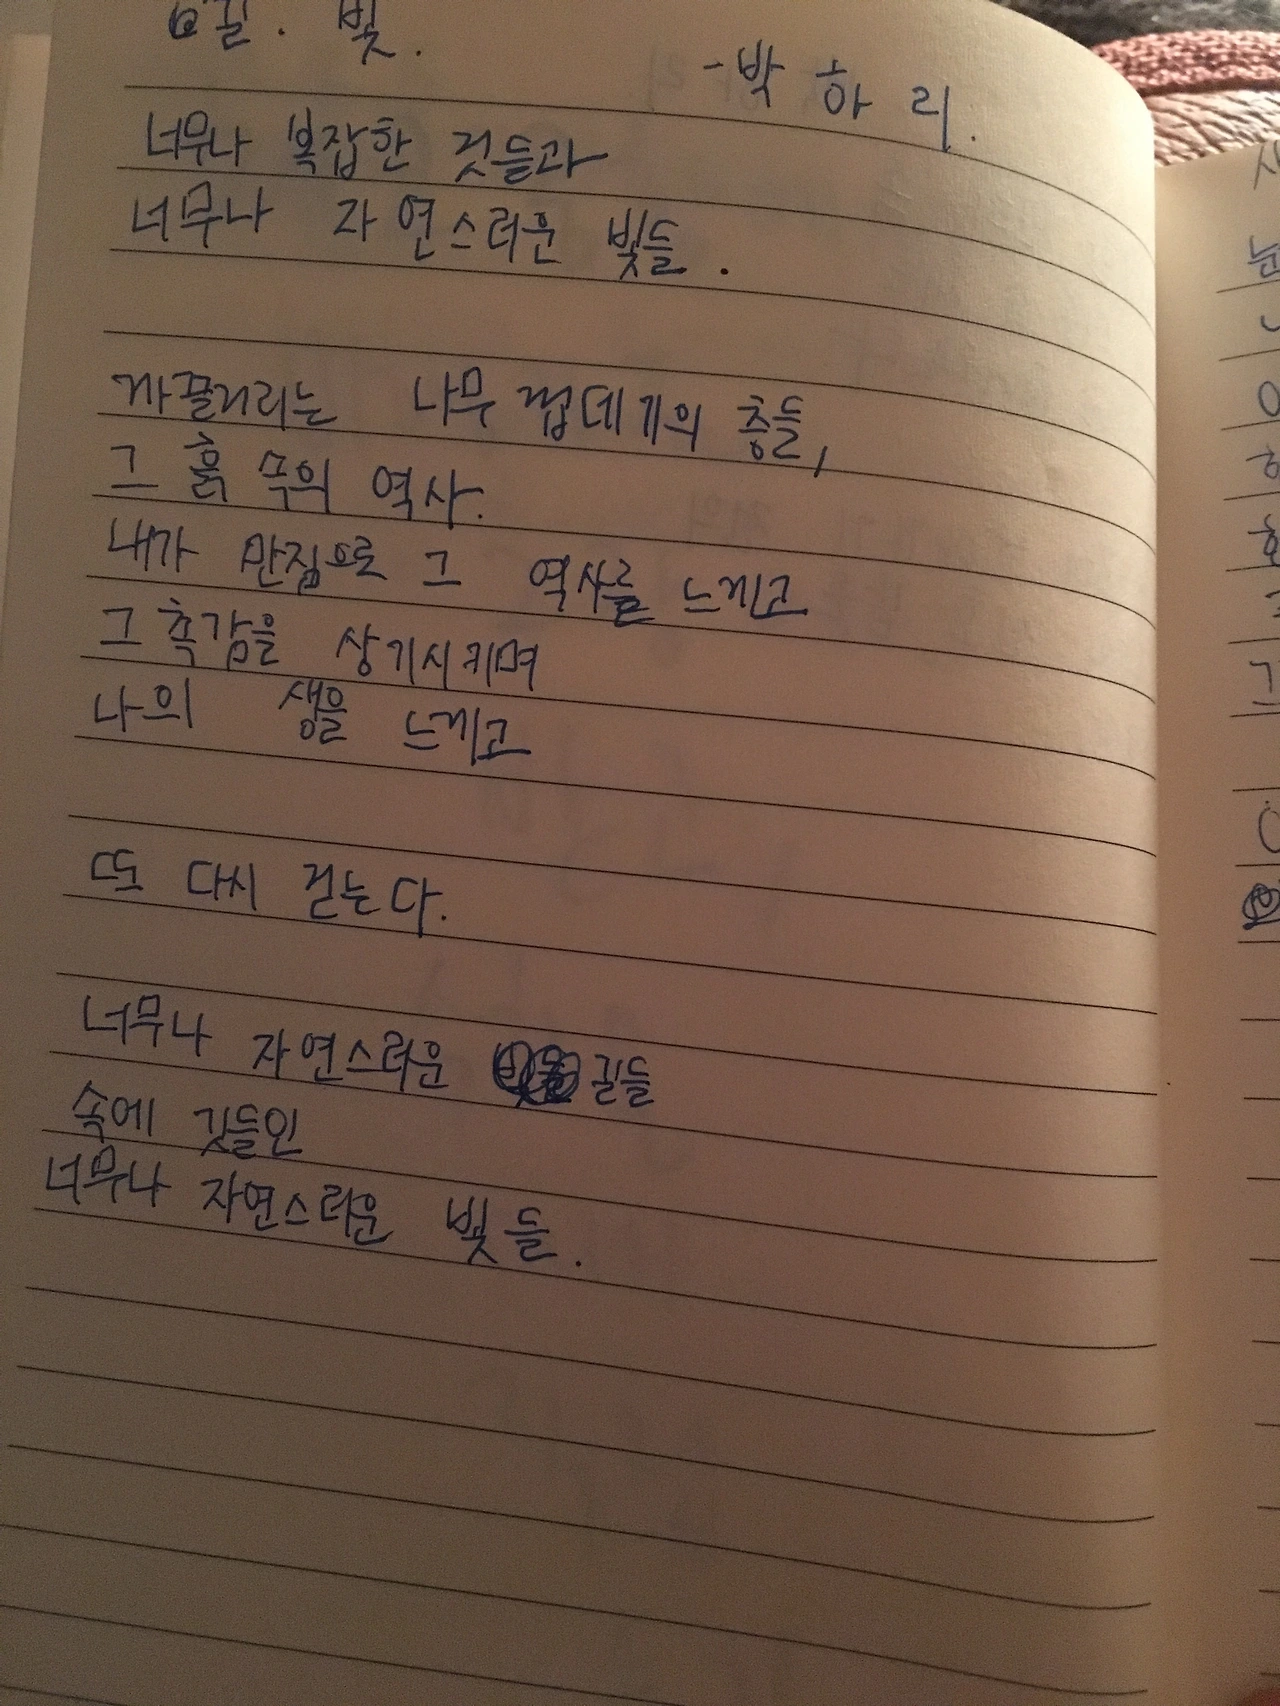 길. 빛.
- 박 하 리.
너무나 복잡한 것들과
너무나 자연스러운 빛들.
까끌거리는 나무 껍데기의 층들,
그 흙 속의 역사.
내가 만짐으로 그 역사를 느끼고
그 촉감을 상기시키며
나의 생을 느끼고
또 다시 걷는다.
너무나 자연스러운 길들
속에 깃들인
너무나 자연스러운 빛들.